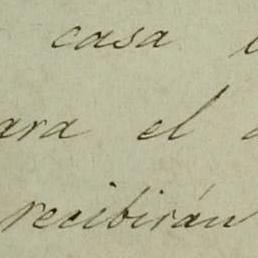 casa
el
recibirán